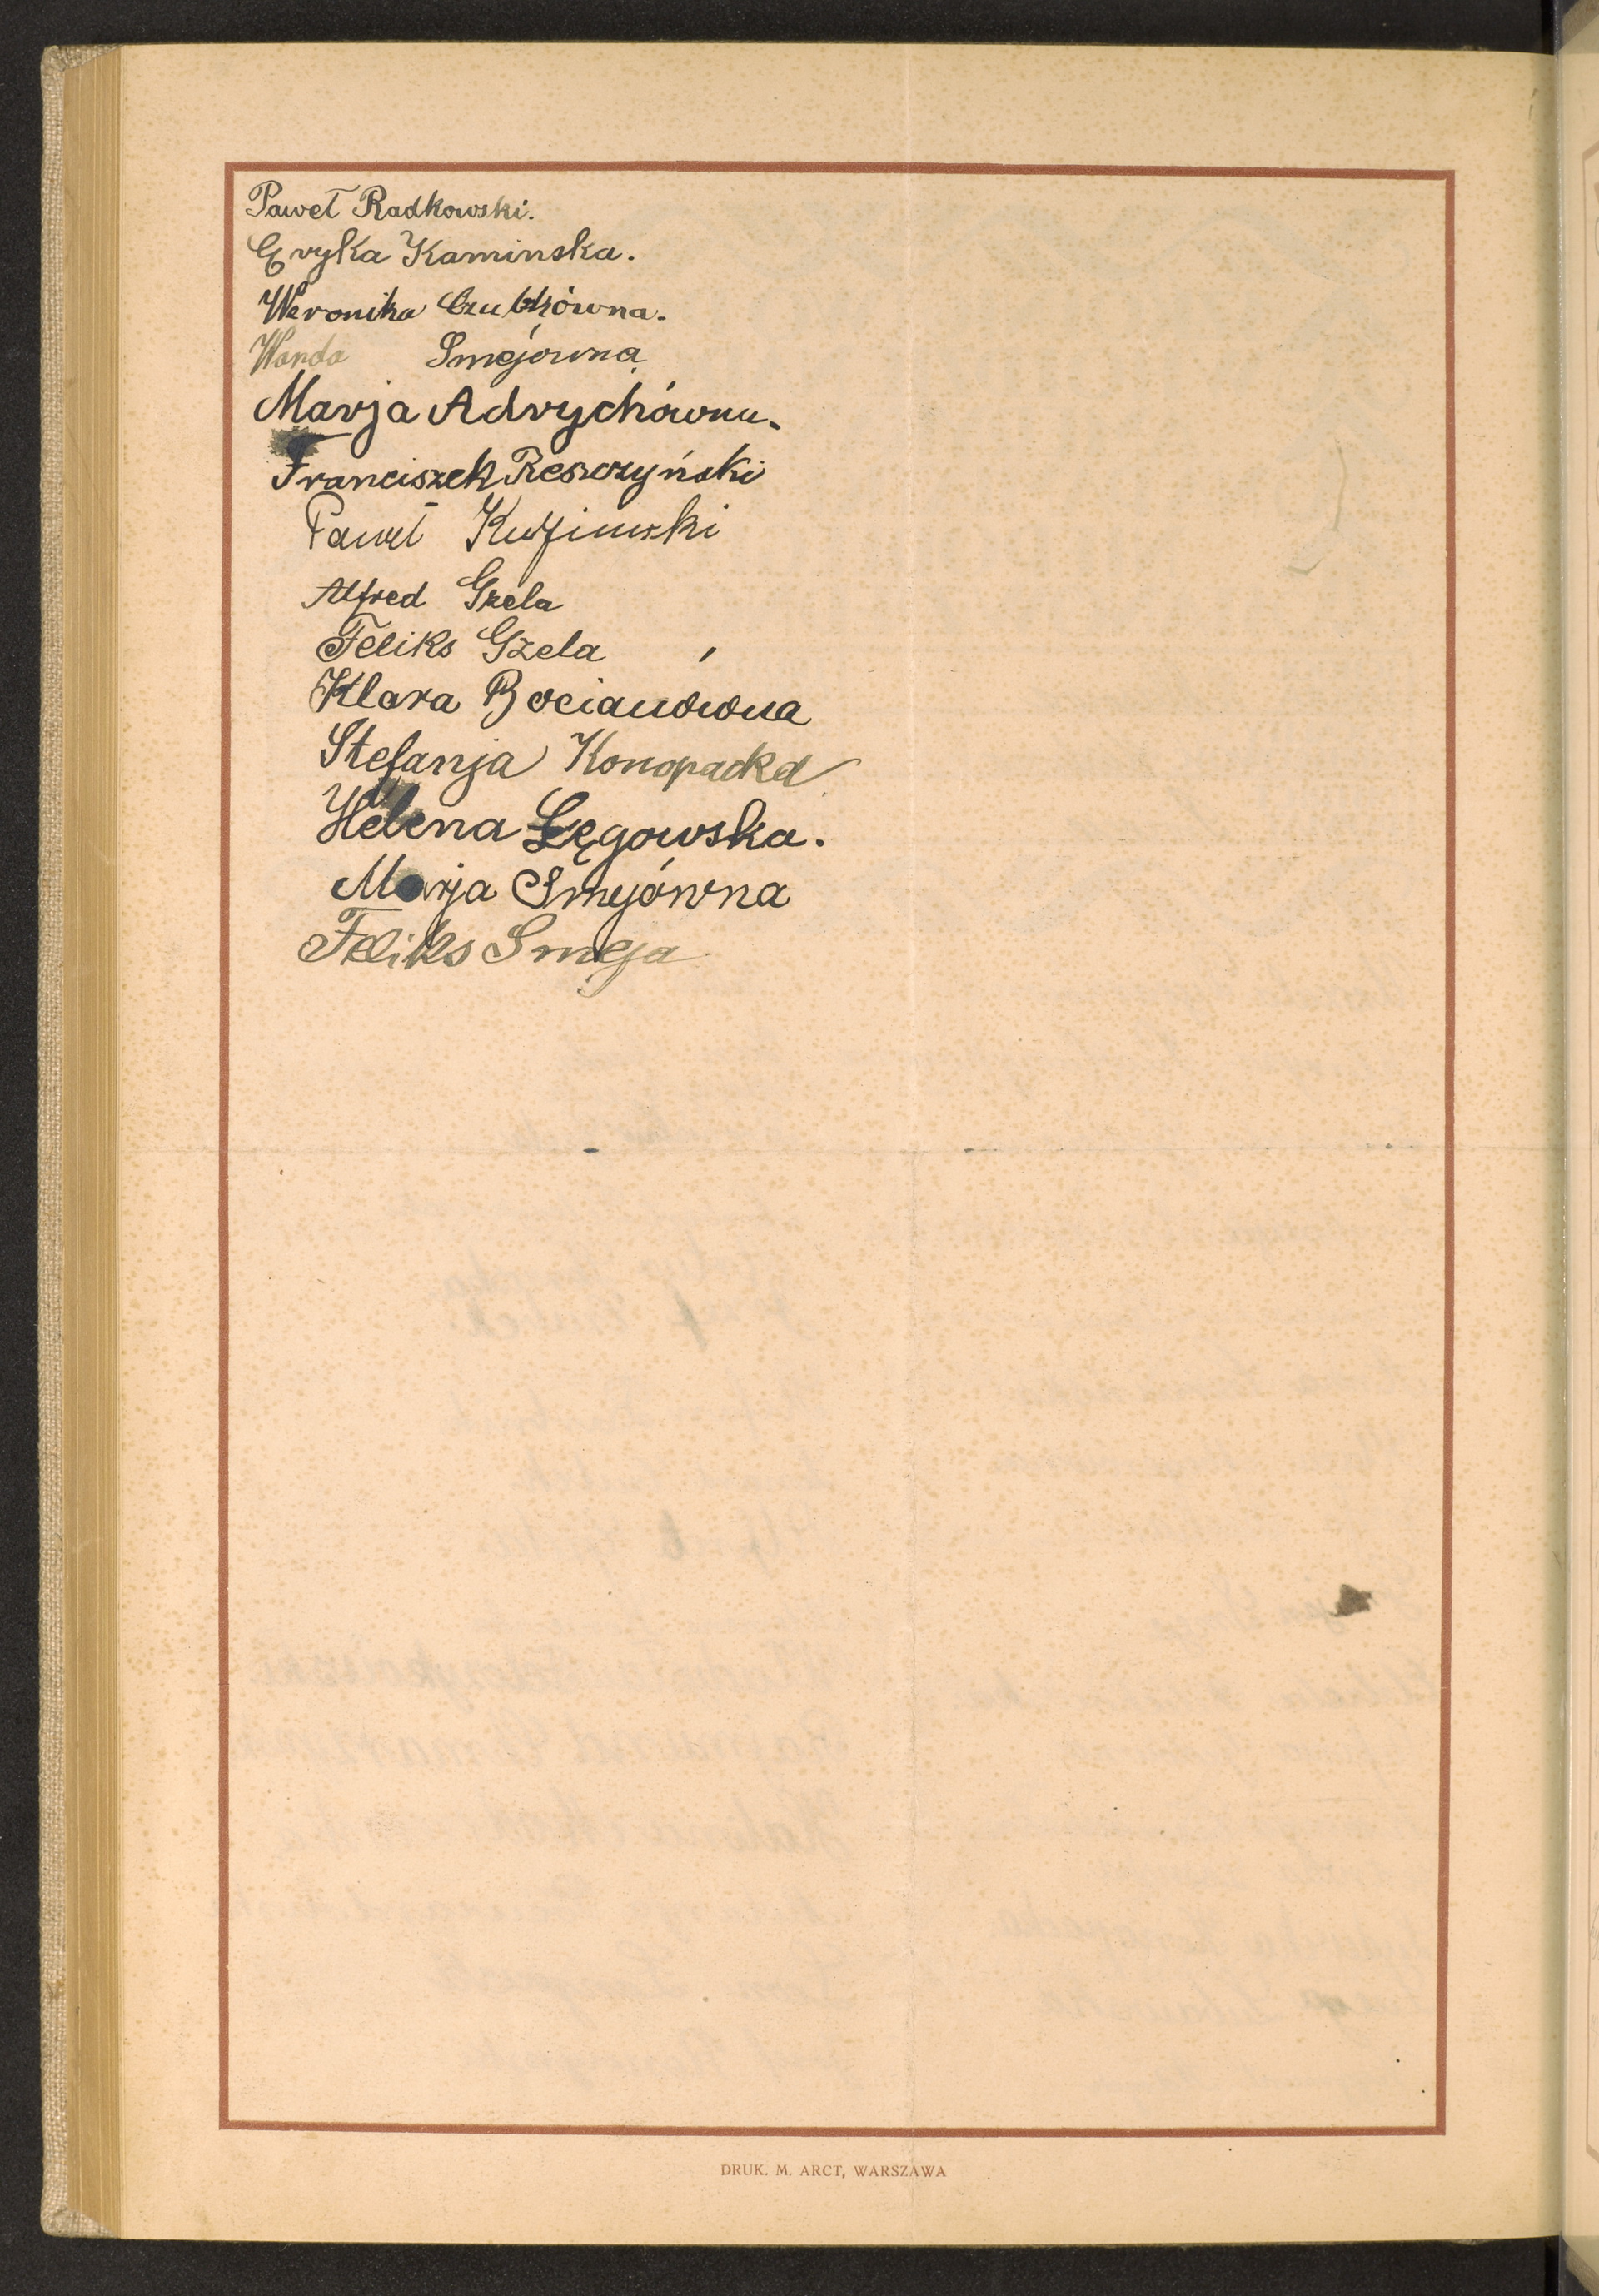 Paweł Radkowski.
Eryka Kaminska.
Weronika Czubkówna.
Wanda Smejówna
Marja Adrychówna.
Franciszek Reszczyński
Paweł
Alfred Gzela
Feliks Gzela
Klara Bocianówna
Stefanja Konopacka
Helena Łęgowska.
Marja Smejówna
Feliks Smeja
DRUK. M. ARCT, WARSZAWA